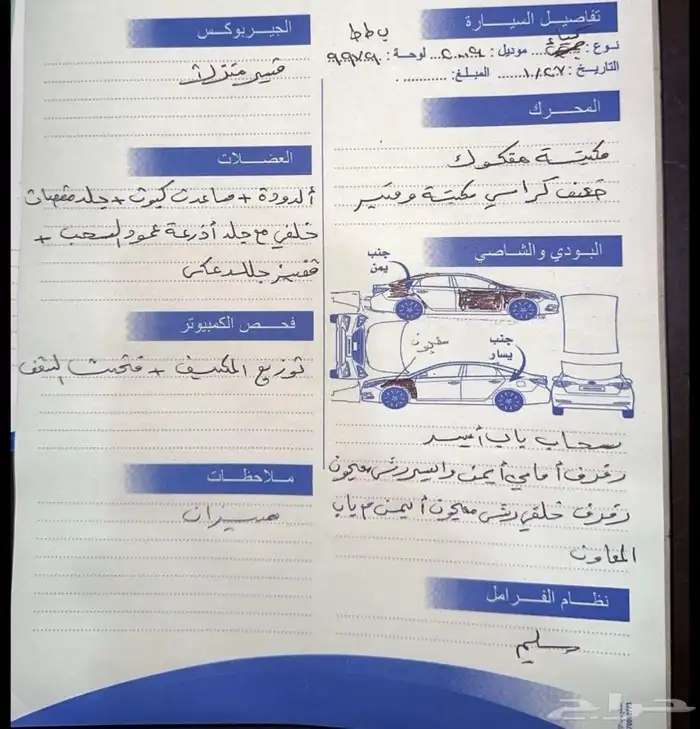 تفاصيل السيارة
ب ط ط
نوع : كياء موديل : ٢٠٠٩ لوحة : ٩٩٧٩
التاريخ : ١٠/٢٧ المبلغ:
المحرك
مكينة مفكوك
ضعف كراسي مكينة وقير
البودي والشاصي
جنب يمن
جنب يسار
معجون
سحاب باب أيسر
رفرف أمامي أيمن وايسر رش معجون
رفرف خلفي رش معجون أيمن م باب
المعاون
نظام الفرامل
سليم
الجيربوكس
قير منزل
العضلات
الدودة + مساعدت كبوت + جلد مقصات
خلفي مع جلد أذرعة عمود السحب +
جلد عكس
فحص الكمبيوتر
توزيع المكيف + فتحت السقف
ملاحظات
ميزان
حراج